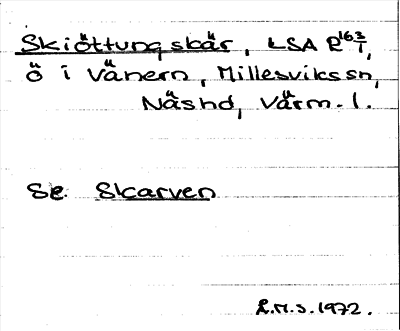 Skiöttungskär, LSA R 163/1,
ö i Vänern, Millesvikssn,
Näshd, Värm. l.
Se Skarven
R.M.S. 1972.